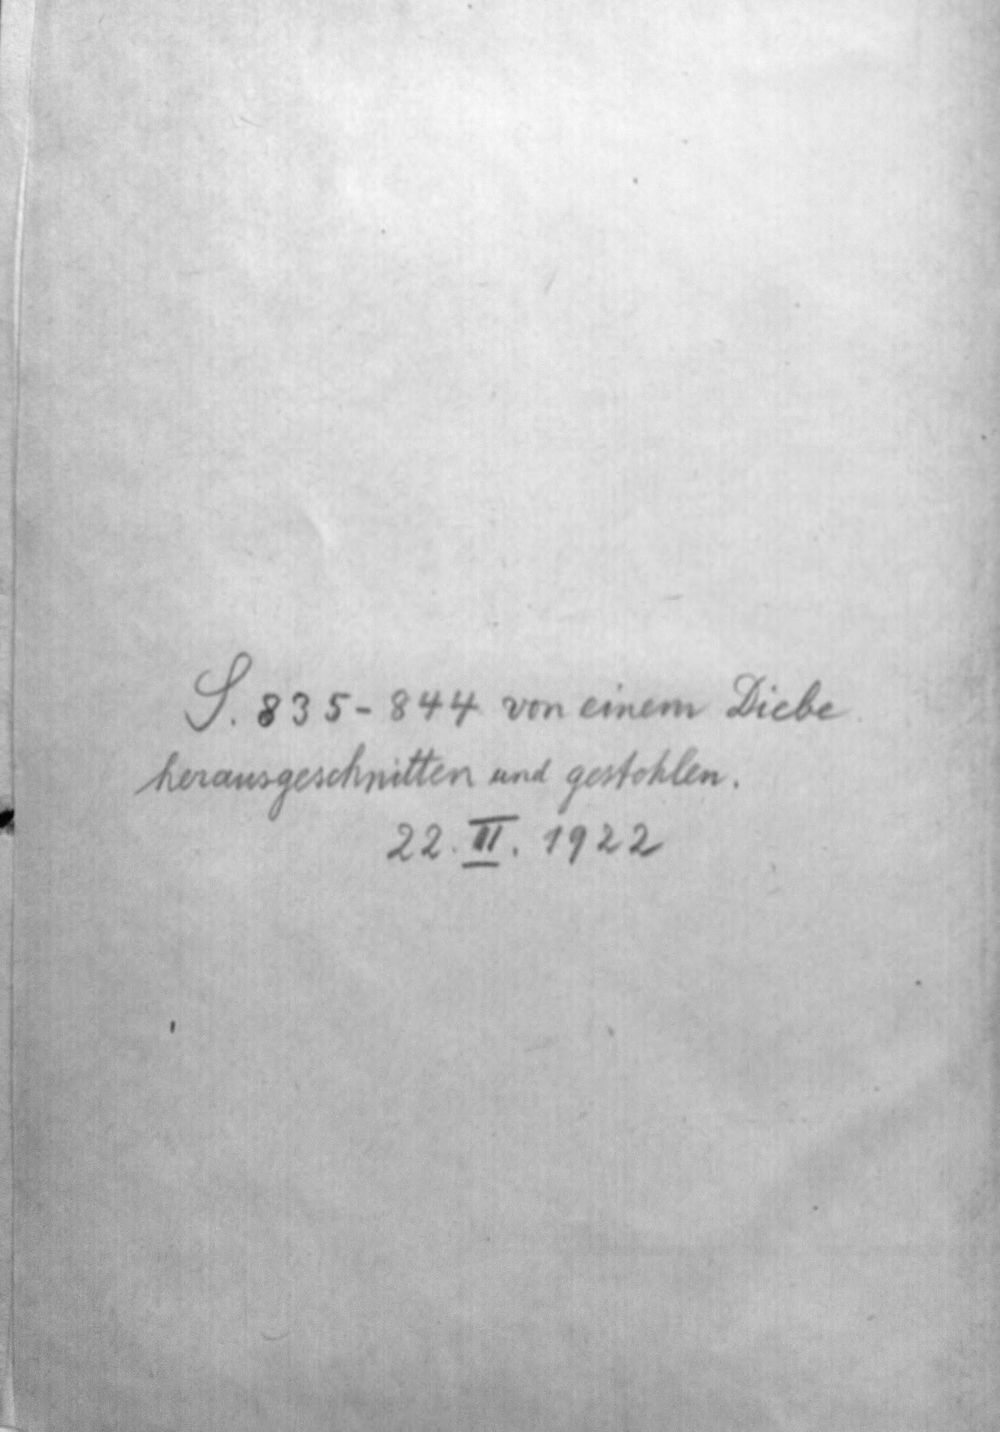 S. 835-844 von einem Diebe
herausgeschnitten und gestohlen.
22. III. 1922